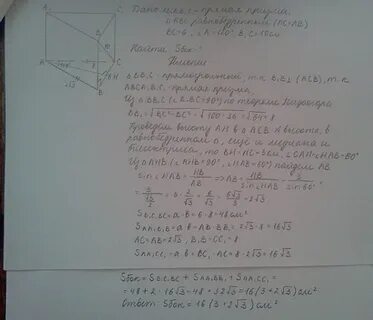 A₁
C₁
B₁
A
C
H
B
2√3
Дано: ABCA₁B₁C₁ - прямая призма,
ΔABC равнобедренный (AC=AB)
BC=6, ∠A=120° B₁C=10см
Найти: Sбок-?
Решение
ΔBB₁C - прямоугольный, т.к B₁B⊥(ACB), т.к
ABCA₁B₁C₁ - прямая призма.
Из ΔBB₁C (∠B₁BC=90°) по теореме Пифагора
BB₁=√B₁C²-BC²=√100-36=√64=8
Проведём высоту AH в ΔACB. AH высота, в
равнобедренном Δ, ещё и медиана и
биссектриса, то BH=HC=3см, ∠CAH=∠HAB=60°
Из ΔAHB (∠AHB=90°, ∠HAB=60°) найдём AB
sin∠HAB=HB/AB ⇒ AB=HB/sin∠HAB=3/sin60°=
=3/(√3/2)=3·2/√3=6/√3=6√3/3=2√3
SB₁C₁BC=a·b=6·8=48см²
SAA₁B₁B=a·b=AB·BB₁=2√3·8=16√3
AC=AB=2√3, B₁B=CC₁=8
SAA₁CC₁=a·b=CC₁·AC=8·2√3=16√3
Sбок=SB₁C₁BC+SAA₁BB₁+SAA₁CC₁=
=48+2·16√3=48+32√3=16(3+2√3)см²
Ответ: Sбок=16(3+2√3)см²